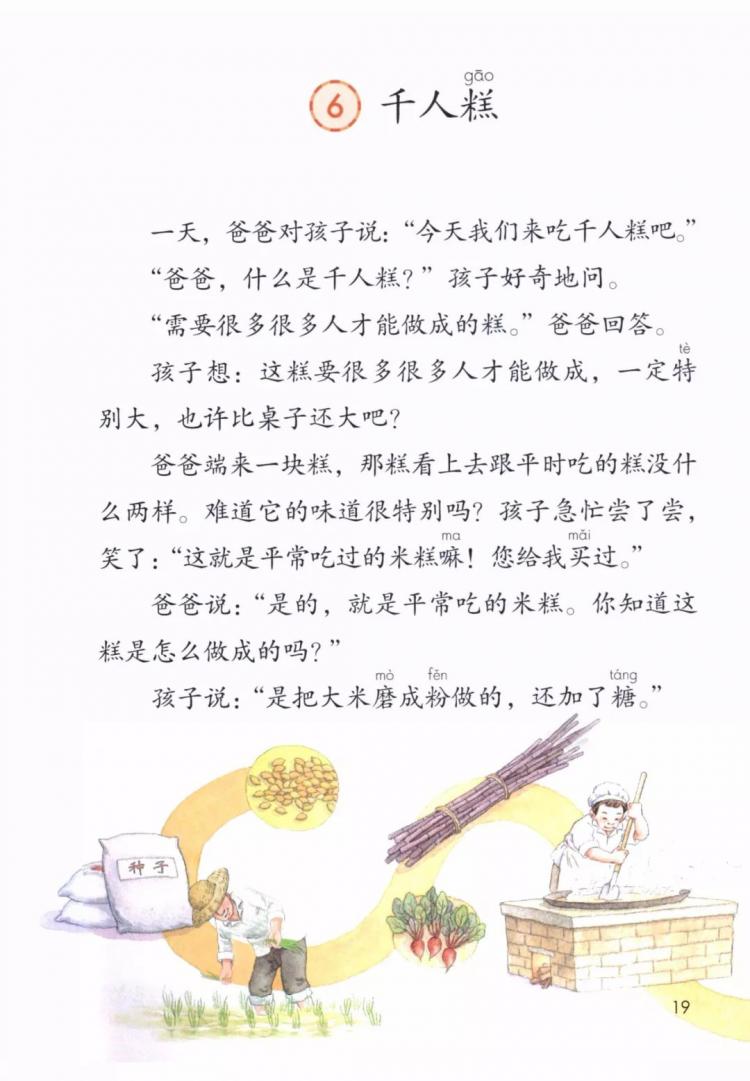 gāo
6 千人糕
一天，爸爸对孩子说：“今天我们来吃千人糕吧。”
“爸爸，什么是千人糕？”孩子好奇地问。
“需要很多很多人才能做成的糕。”爸爸回答。
tè
孩子想：这糕要很多很多人才能做成，一定特
别大，也许比桌子还大吧？
爸爸端来一块糕，那糕看上去跟平时吃的糕没什
么两样。难道它的味道很特别吗？孩子急忙尝了尝，
ma mǎi
笑了：“这就是平常吃过的米糕嘛！您给我买过。”
爸爸说：“是的，就是平常吃的米糕。你知道这
糕是怎么做成的吗？”
mò fěn táng
孩子说：“是把大米磨成粉做的，还加了糖。”
种子
19